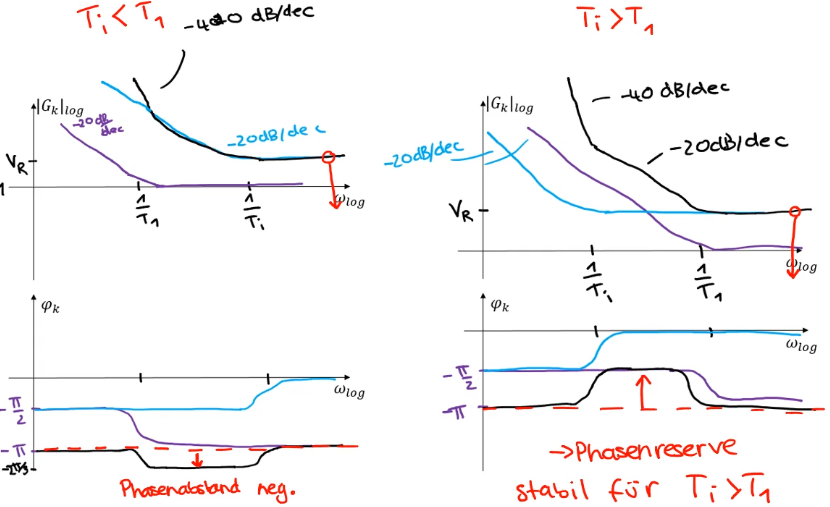 Ti < T1
-40 dB/dec
|Gk|log
-20dB/dec
-20dB/dec
VR
1
1/T1
1/Ti
ωlog
φk
ωlog
-π/2
-π
Phasenabstand neg.
Ti > T1
-40 dB/dec
|Gk|log
-20dB/dec
-20dB/dec
VR
1/Ti
1/T1
ωlog
φk
ωlog
-π/2
-π
→Phasenreserve
stabil für Ti>T1